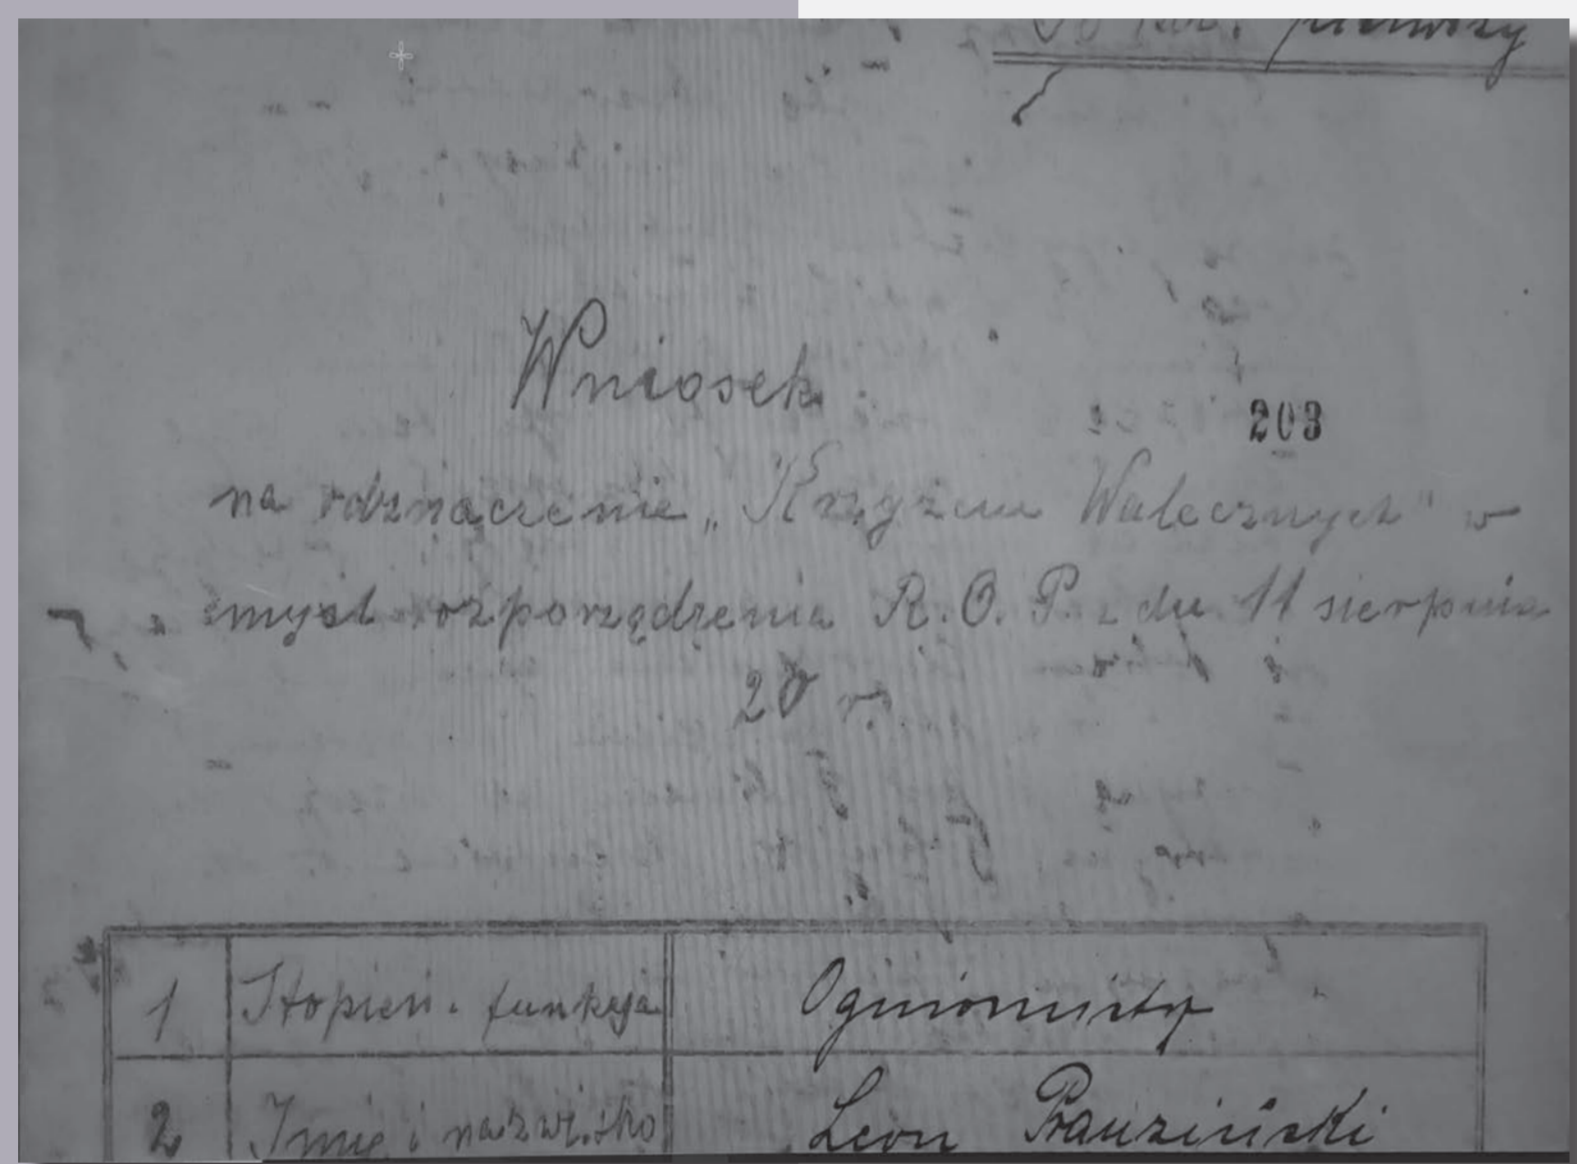 pierwszy
Wniosek
203
na odznaczenie „Krzyżem Walecznych" w
myśl rozporządzenia R.O.P. z dn 11 sierpnia
20 r.
1 Stopień i funkcja Ogniomistrz
2 Imię i nazwisko Leon